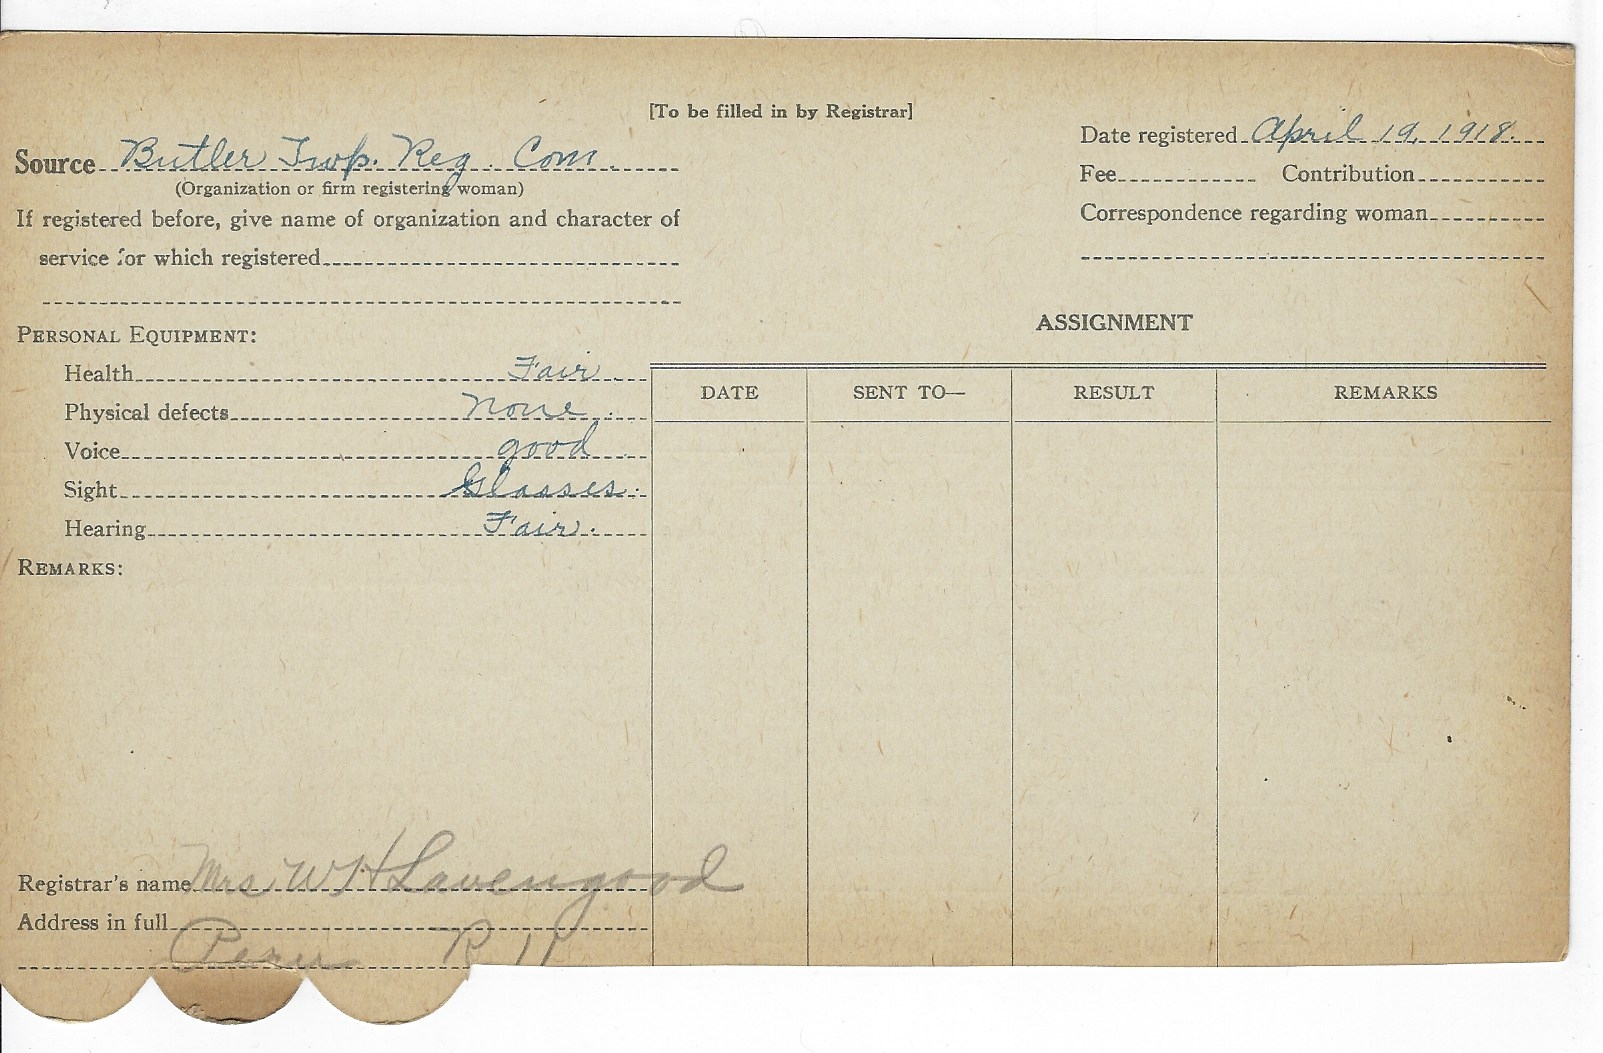 [To be filled in by Registrar]
Source Butler Twp. Reg. Com.
(Organization or firm registering woman)
If registered before, give name of organization and character of
service for which registered
Date registered April 19, 1918.
Fee Contribution
Correspondence regarding woman
PERSONAL EQUIPMENT:
Health Fair
Physical defects none
Voice good
Sight Glasses.
Hearing Fair.
REMARKS:
ASSIGNMENT
DATE SENT TO— RESULT REMARKS
Registrar's name Mrs W H Lavengood
Address in full
Peru R 11